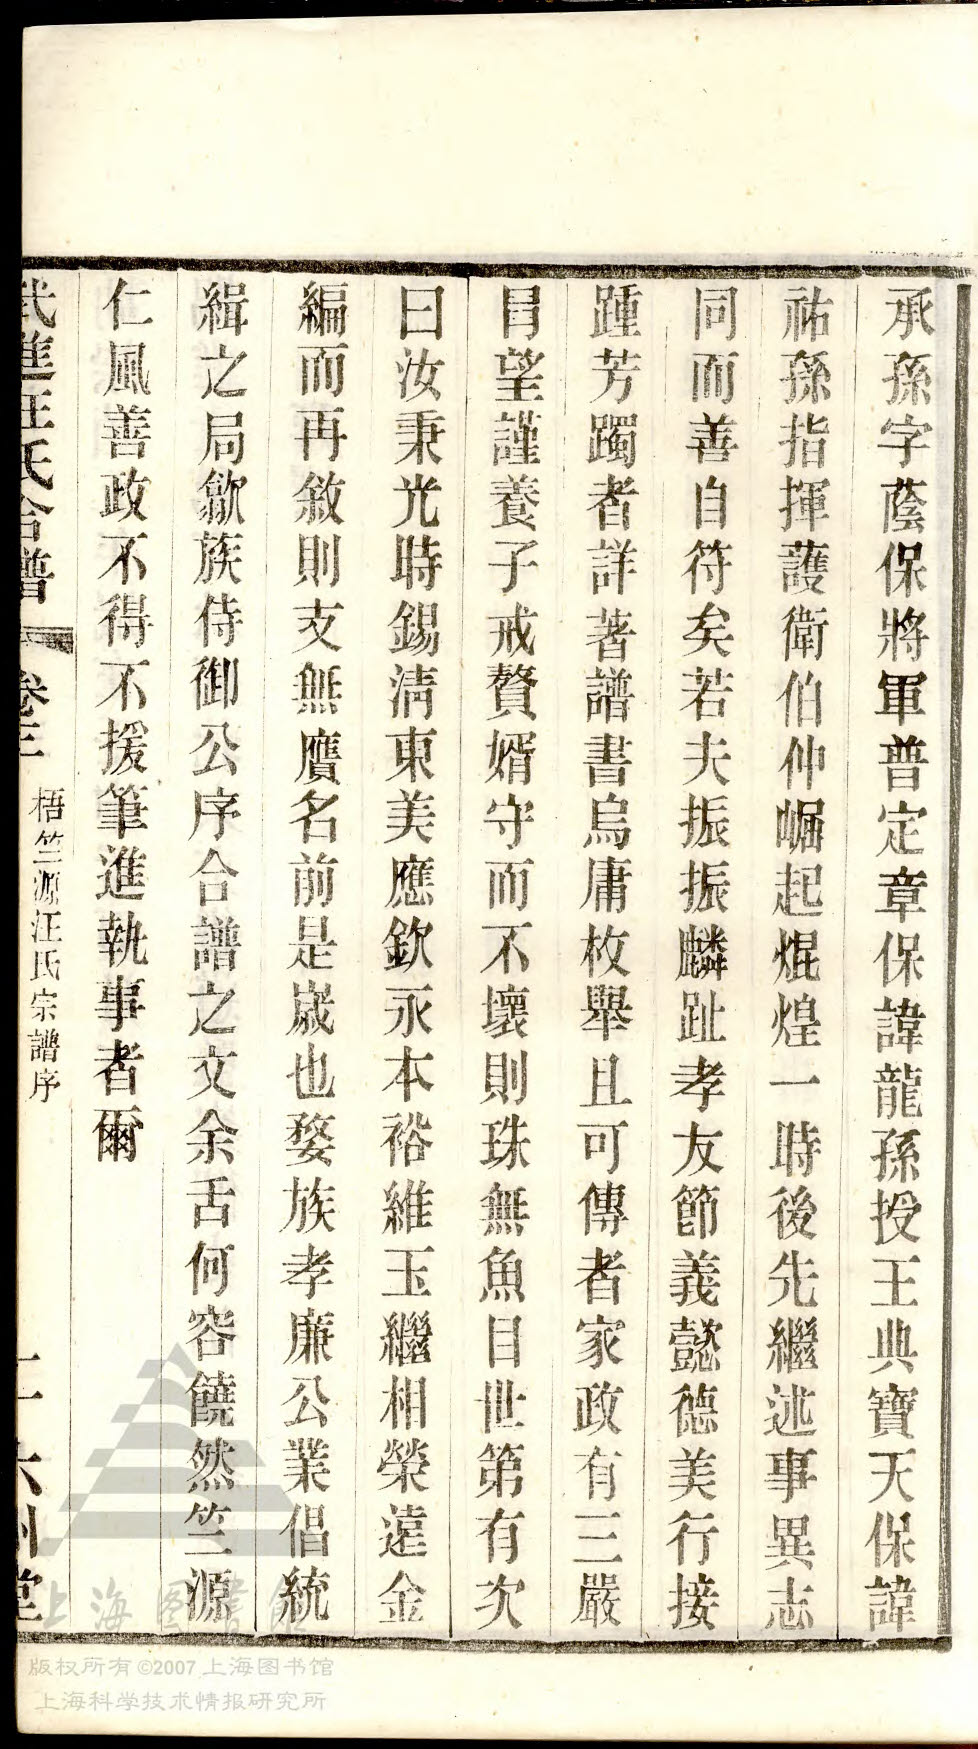 承孫字蔭保將軍普定章保諱龍孫授王典寶天保諱
祐孫指揮護衛伯仲崛起焜煌一時後先繼述事異志
同而善自符矣若夫振振麟趾孝友節義懿德美行接
踵芳躅者詳著譜書烏庸枚舉且可傳者家政有三嚴
冐望謹養子戒贅婿守而不壞則珠無魚目世第有次
曰汝秉光時錫清東美應欽永本裕維玉繼相榮遠金
編而再敘則支無贋名前是歲也婺族孝廉公業倡統
緝之局歙族侍御公序合譜之文余舌何容饒然竺源
仁風善政不得不援筆進執事者爾
武進汪氏合譜 卷三 梧竺源汪氏宗譜序 六州堂
上海图書館
版权所有©2007上海图书馆
上海科学技术情报研究所